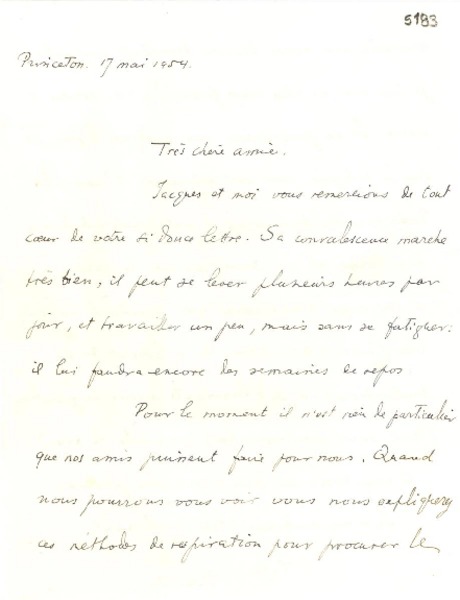 5183
Princeton. 17 mai 1954.
Très chère amie.
Jacques et moi vous remercions de tout
cœur de votre si douce lettre. Sa convalescence marche
très bien, il peut se lever plusieurs heures par
jour, et travailler un peu, mais sans se fatiguer.
il lui faudra encore des semaines de repos
Pour le moment il n'est rien de particulier
que nos amis puissent faire pour nous. Quand
nous pourrons vous voir vous nous expliquerez
ces méthodes de respiration pour procurer le